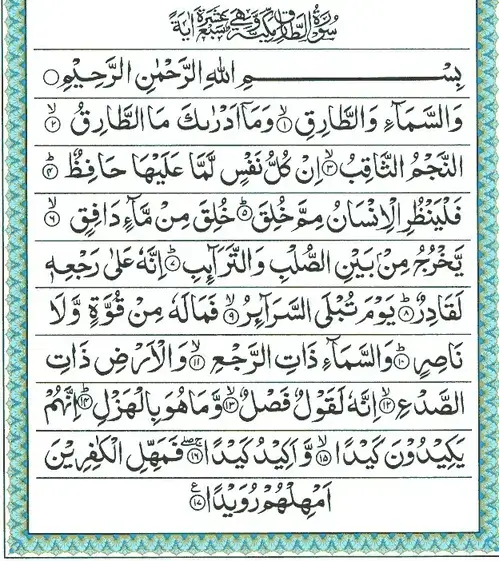 سُوْرَةُ الطَّارِقِ مَكِّيَّةٌ وَّهِيَ سَبْعَ عَشَرَةَ اٰيَةً
بِسْمِ اللهِ الرَّحْمٰنِ الرَّحِيْمِ ○
وَالسَّمَآءِ وَالطَّارِقِ ۙ﴿۱﴾ وَمَاۤ اَدْرٰىكَ مَا الطَّارِقُ ۙ﴿۲﴾
النَّجْمُ الثَّاقِبُ ۙ﴿۳﴾ اِنْ كُلُّ نَفْسٍ لَّمَّا عَلَيْهَا حَافِظٌ ؕ﴿۴﴾
فَلْيَنْظُرِ الْاِنْسَانُ مِمَّ خُلِقَ ؕ﴿۵﴾ خُلِقَ مِنْ مَّآءٍ دَافِقٍ ۙ﴿۶﴾
يَّخْرُجُ مِنْۢ بَيْنِ الصُّلْبِ وَالتَّرَآئِبِ ؕ﴿۷﴾ اِنَّهٗ عَلٰى رَجْعِهٖ
لَقَادِرٌ ؕ﴿۸﴾ يَوْمَ تُبْلَى السَّرَآئِرُ ۙ﴿۹﴾ فَمَا لَهٗ مِنْ قُوَّةٍ وَّلَا
نَاصِرٍ ؕ﴿۱۰﴾ وَالسَّمَآءِ ذَاتِ الرَّجْعِ ۙ﴿۱۱﴾ وَالْاَرْضِ ذَاتِ
الصَّدْعِ ۙ﴿۱۲﴾ اِنَّهٗ لَقَوْلٌ فَصْلٌ ۙ﴿۱۳﴾ وَّمَا هُوَ بِالْهَزْلِ ؕ﴿۱۴﴾ اِنَّهُمْ
يَكِيْدُوْنَ كَيْدًا ۙ﴿۱۵﴾ وَّاَكِيْدُ كَيْدًا ۚۖ﴿۱۶﴾ فَمَهِّلِ الْكٰفِرِيْنَ
اَمْهِلْهُمْ رُوَيْدًا ﴿۱۷﴾ ع